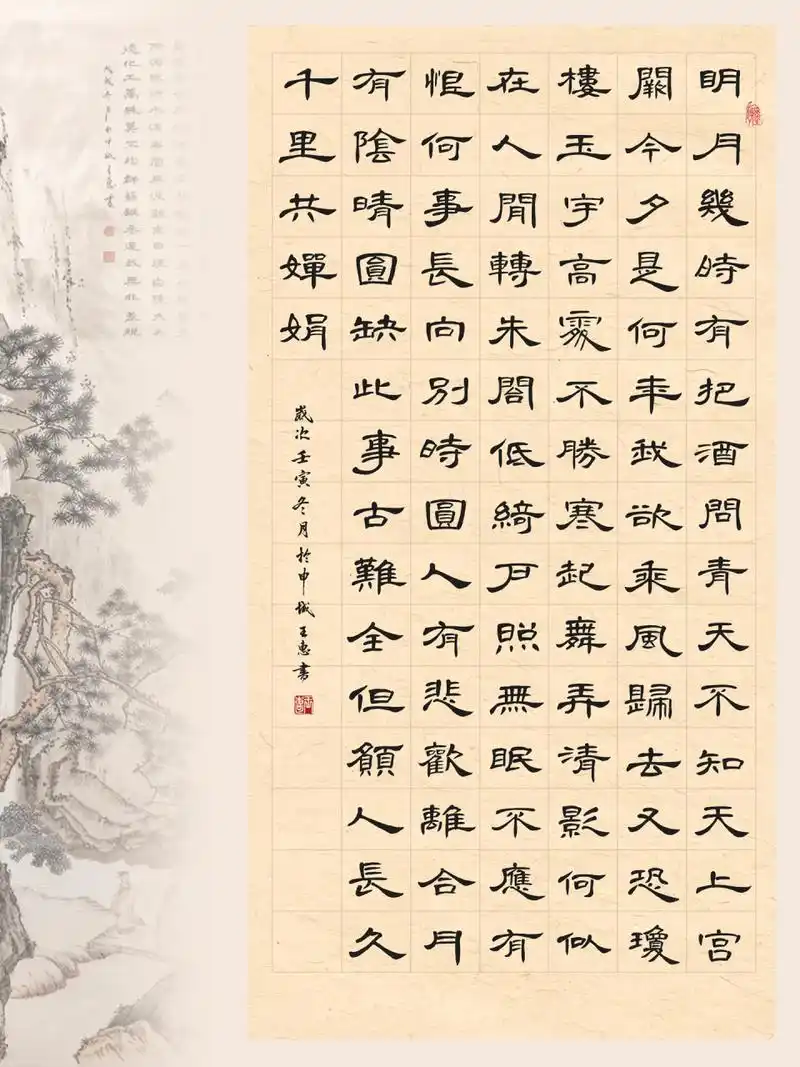 明月幾時有把酒問青天不知天上宮
闕今夕是何年我欲乘風歸去又恐瓊
樓玉宇高處不勝寒起舞弄清影何似
在人間轉朱閣低綺戶照無眠不應有
恨何事長向別時圓人有悲歡離合月
有陰晴圓缺此事古難全但願人長久
千里共嬋娟
歲次壬寅冬月於申城王惠書